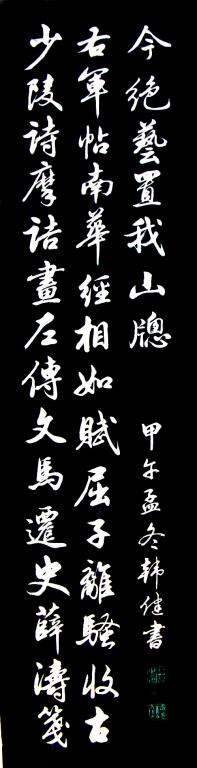 少陵詩摩詰畫左傳文馬遷史薛濤箋
右軍帖南華經相如賦屈子離騷收古
今絶藝置我山牕
甲午孟冬韓健書